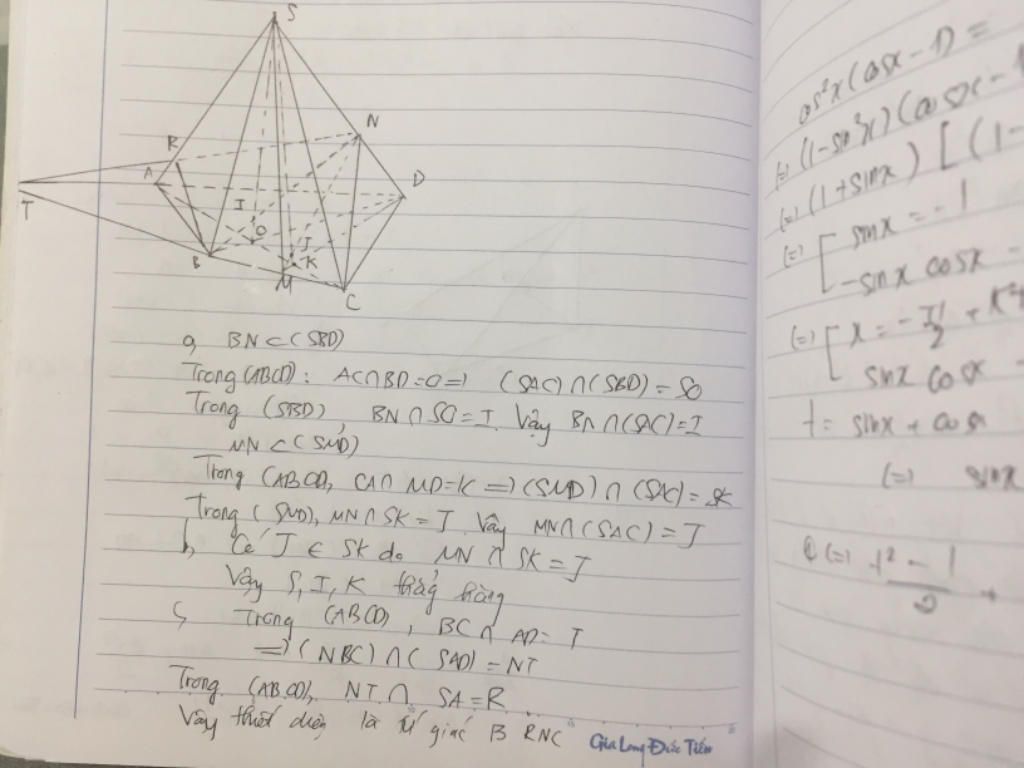 S
N
R
A
D
T
I
O
J
B
K
M
C
a, BN ⊂ (SBD)
Trong (ABCD): AC∩BD=O=> (SAC)∩(SBD)=SO
Trong (SBD) BN∩SO=I. Vậy BN∩(SAC)=I
MN ⊂ (SMD)
Trong (ABCD), CA∩MD=K => (SMD)∩(SAC)=SK
Trong (SMD), MN∩SK=J Vậy MN∩(SAC)=J
b, Có J ∈ SK do MN∩SK=J
Vậy S, I, K thẳg hàng
c, Trong (ABCD), BC∩AD=T
=> (NBC)∩(SAD)=NT
Trong (ABCD), NT∩SA=R
Vậy thiết diện là tứ giác BRNC
Gia Long Đức Tiến
cos²x(cosx-1)=
(=) (1-sin²x)(cosx-1
(=) (1+sinx)[(1-
(=) [ sinx=-1
-sinx cosx -
(=) [ x=-π/2+k2
sinx cosx -
t= sinx+cosx
(=) sinx
(=) t²-1/2 +